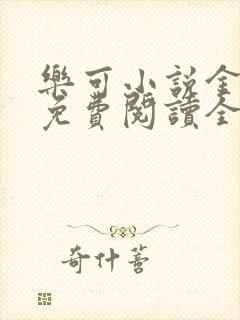 樂可小說全
免費閱讀全
奇什菩